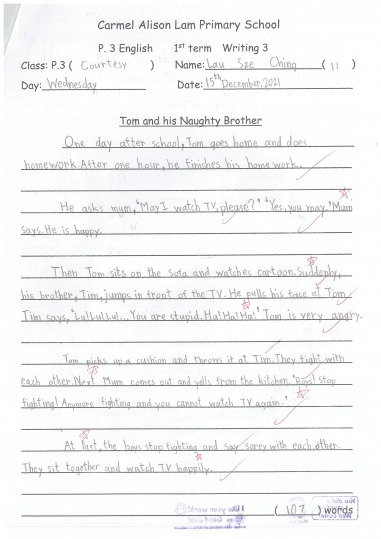 Carmel Alison Lam Primary School
P. 3 English 1st term Writing 3
Class: P.3 ( Courtesy ) Name: Lau Sze Ching ( 11 )
Day: Wednesday Date: 15th December, 2021
Tom and his Naughty Brother
One day after school, Tom goes home and does
homework. After one hour, he finishes his home work.
He asks mum, "May I watch TV, please?" "Yes, you may," Mum
says. He is happy.
Then Tom sits on the sofa and watches cartoon. Suddenly,
his brother, Tim, jumps in front of the TV. He pulls his face at Tom
Tim says, "Lu! Lu! Lu!... You are stupid. Ha! Ha! Ha!" Tom is very angry.
Tom picks up a cushion and throws it at Tim. They fight with
each other. Next Mum comes out and yells from the kitchen, "Boys! Stop
fighting! Anymore fighting and you cannot watch TV again."
At last, the boys stop fighting and say sorry with each other.
They sit together and watch TV happily.
( 107 ) words
I like your work!